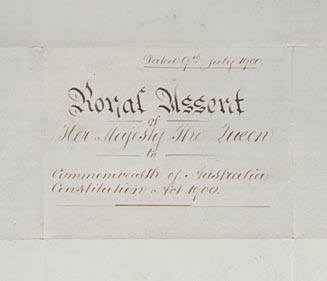 Dated 9th July 1900.
Royal Assent
of
Her Majesty The Queen
to
Commonwealth of Australia
Constitution Act 1900.